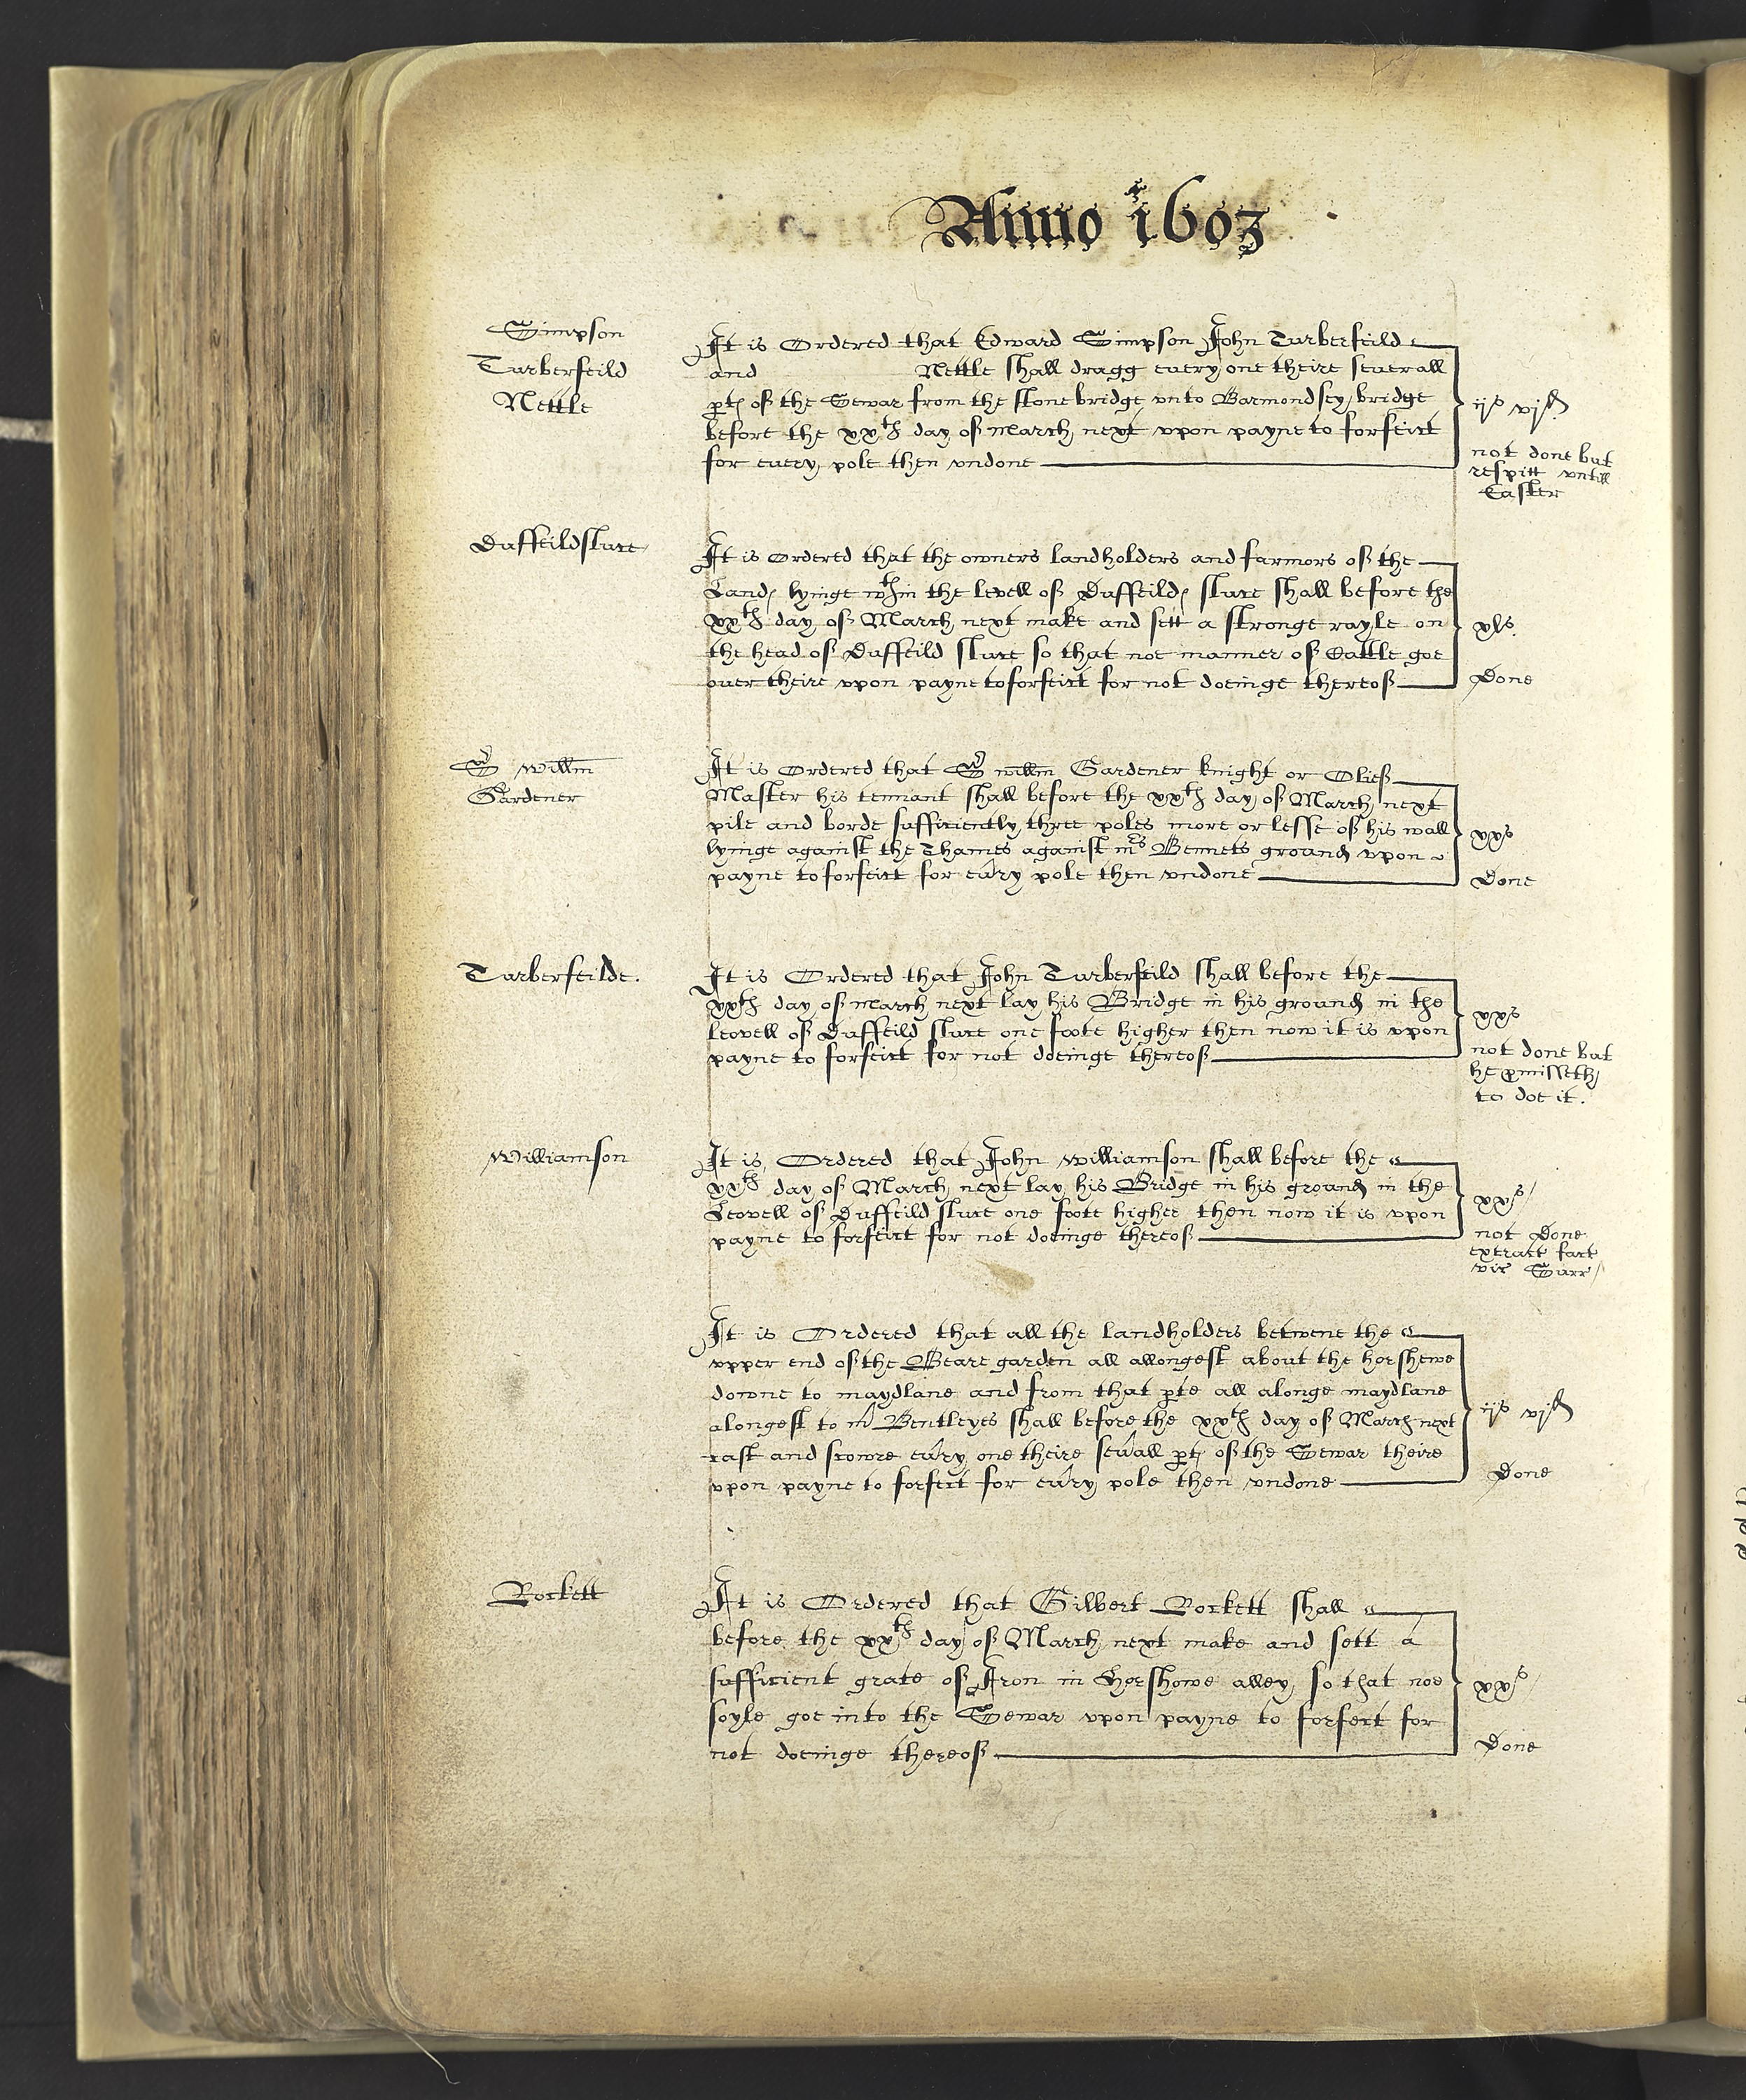 Anno 1603
Simpson
Turberfeild
Nettle
It is Ordered that Edward Simpson John Turberfeild
and Nettle shall dragg every one theire severall
ptes of the Sewar from the stone bridge vnto Barmondsey bridge
before the xxth day of march next vpon payne to forfeict
for every pole then vndone
ijs vjd
not done but
respitt vntill
Easter
Duffeild sluce
It is Ordered that the owners landholders and farmors of the
Landes lyinge wthin the levell of Duffeildes sluce shall before the
xxth day of March next make and sett a stronge rayle on
the head of Duffeild sluce so that noe manner of Cattle goe
over theire vpon payne to forfeict for not doeinge thereof
xls.
Done
Sr Willm
Gardener
It is Ordered that Sr willm Gardener knight or Olieff
Master his tennant shall before the xxth day of March next
pile and borde sufficiently three poles more or lesse of his wall
lyinge against the Thames against mrs Bennets ground vpon
payne to forfeict for eury pole then vndone
xxs
Done
Turberfeilde.
It is Ordered that John Turberfeild shall before the
xxth day of march next lay his Bridge in his ground in the
leovell of Duffeild sluce one foote higher then now it is vpon
payne to forfeict for not doeinge thereof
xxs
not done but
he pmisseth
to doe it.
Williamson
It is Ordered that John Williamson shall before the
xxth day of March next lay his Bridge in his ground in the
Leovell of Duffeild sluce one foote higher then now it is vpon
payne to forfeict for not doeinge thereof
xxs
not Done
extract fact
vic Surr
It is Ordered that all the landholders betwene the
vpper end of the Beare garden all allongest about the horshewe
downe to maydlane and from that pte all alonge maydlane
alongest to mr Bentleyes shall before the xxth day of March next
cast and scowre eury one theire seuall ptes of the Sewar theire
vpon payne to forfect for eury pole then vndone
ijs vjd
Done
Rockett
It is Ordered that Gilbert Rockett shall
before the xxth day of March next make and sett a
sufficient grate of Iron in Horshowe alley so that noe
soyle goe into the Sewar vpon payne to forfect for
not doeinge thereof
xxs
Done